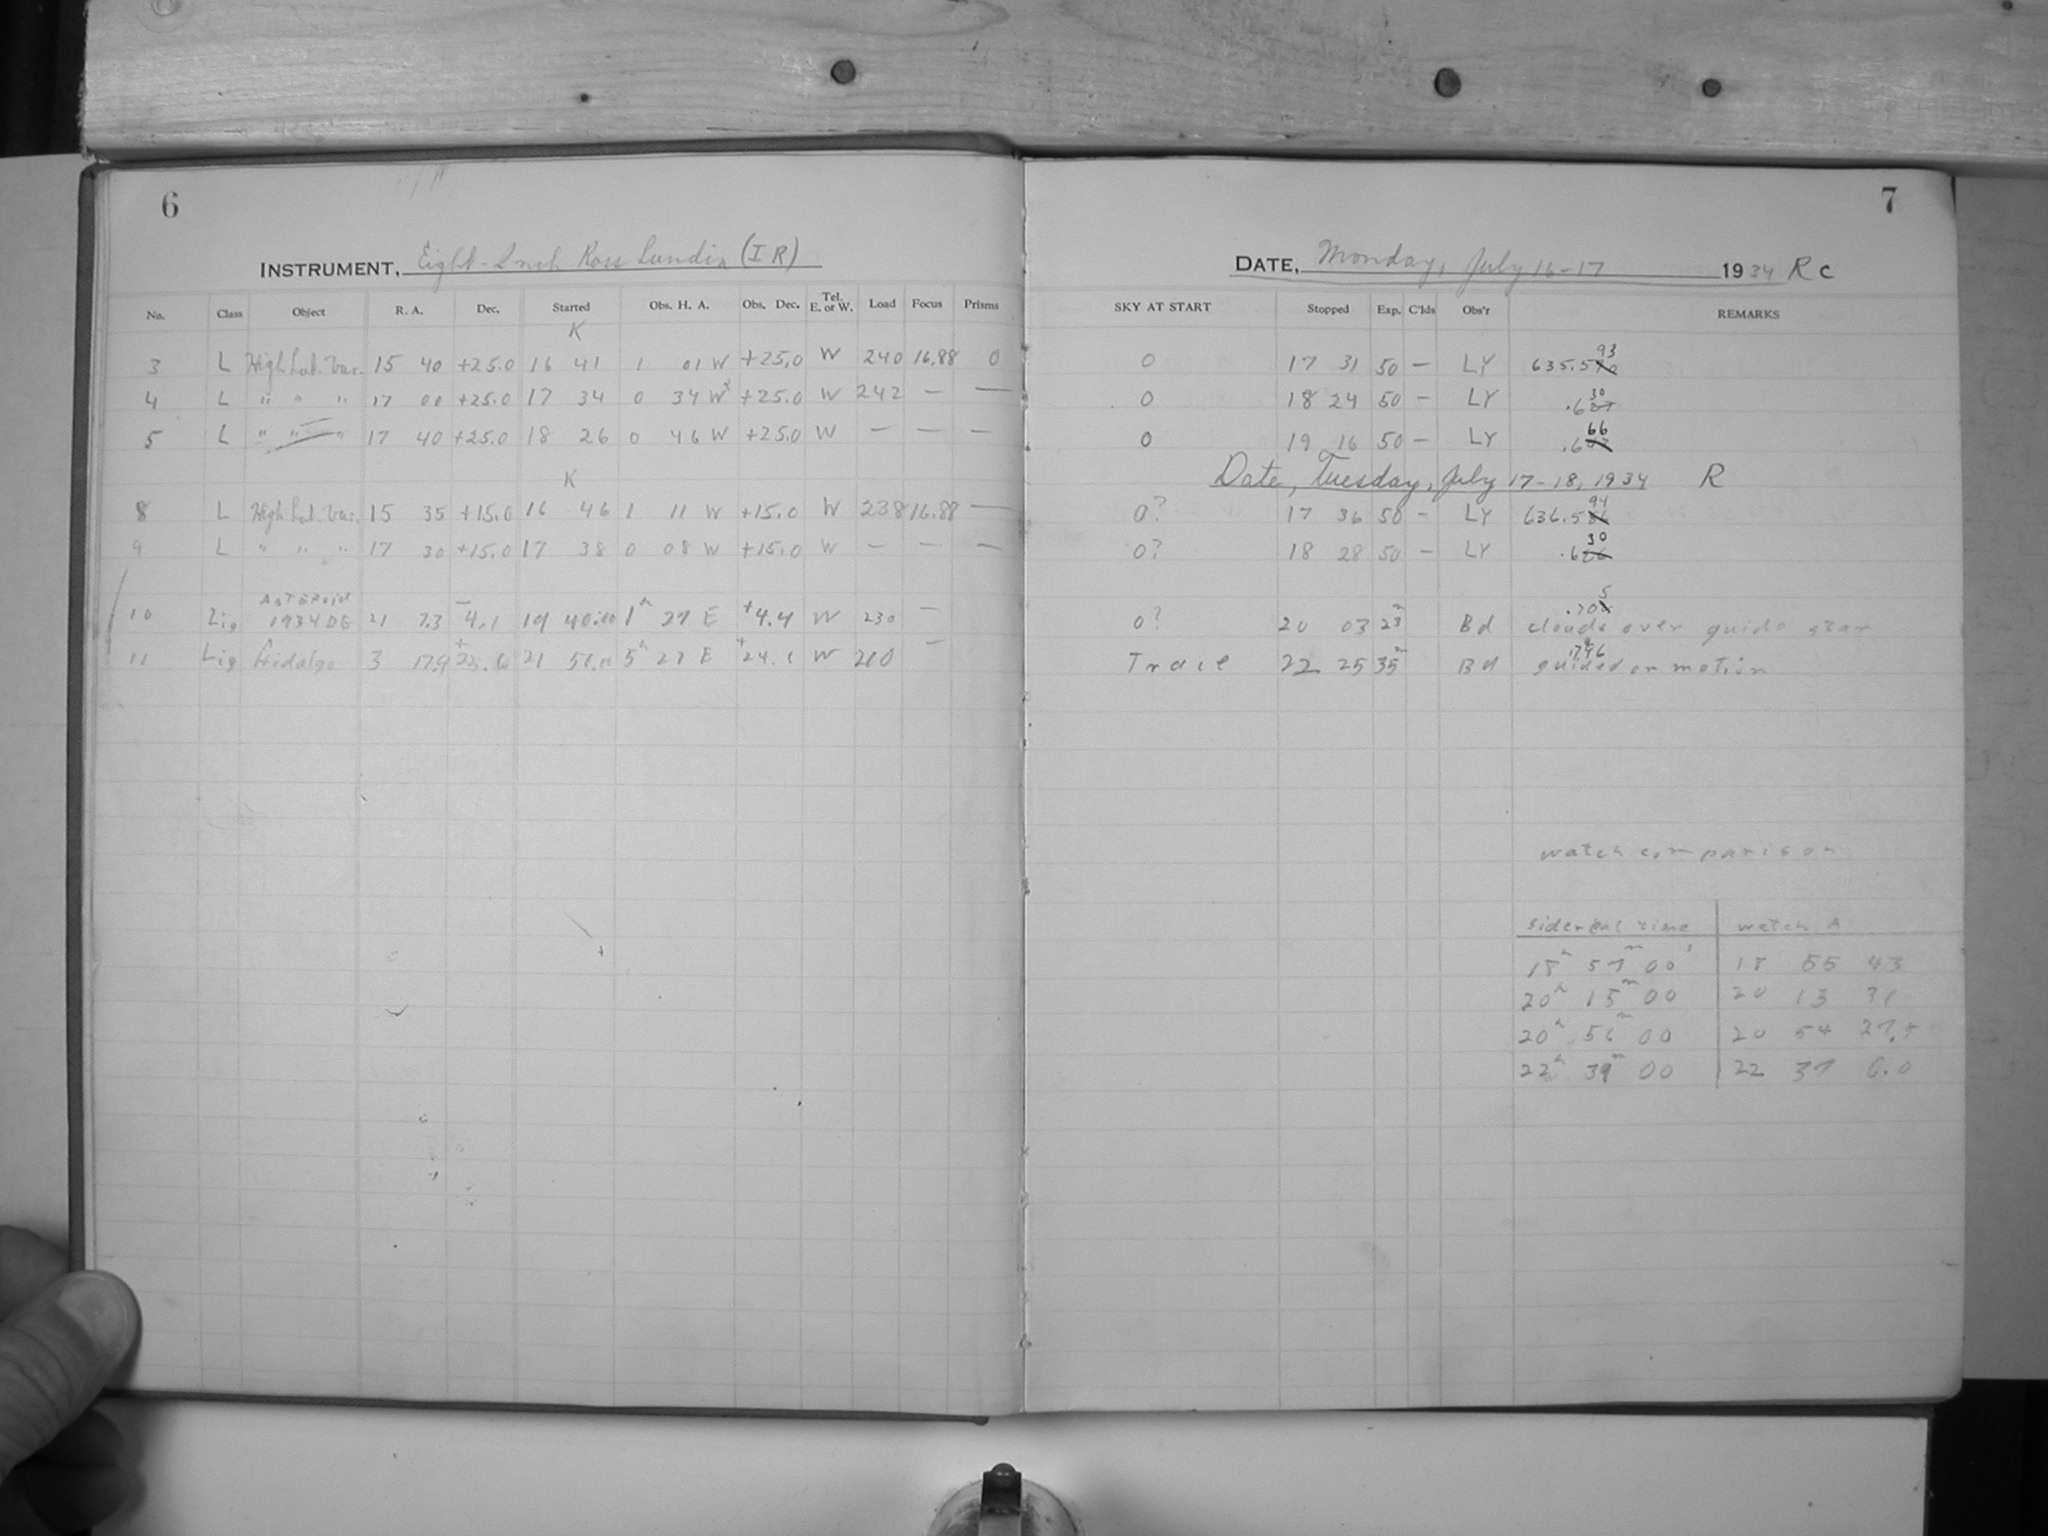 6
INSTRUMENT, Eight-Inch Ross Lundin (IR)
No. Class Object R. A. Dec. Started Obs. H. A. Obs. Dec. Tel. E. or W. Load Focus Prisms
K
3 L High Lat. Var. 15 40 +25.0 16 41 1 01 W +25.0 W 240 16.88 0
4 L " " " 17 00 +25.0 17 34 0 34 W +25.0 W 242 — —
5 L " " " 17 40 +25.0 18 26 0 46 W +25.0 W — — —
K
8 L High Lat. Var. 15 35 +15.0 16 46 1 11 W +15.0 W 238 16.88 —
9 L " " " 17 30 +15.0 17 38 0 08 W +15.0 W — — —
10 Lig ASTEROID 1934 DE 21 7.3 -4.1 19 40:00 1h 27 E +4.4 W 230 —
11 Lig Hidalgo 3 17.9 21 5h 27 E +24.1 W 210 —
7
DATE, Monday, July 16-17 1934 R c
SKY AT START Stopped Exp. C'lds Obs'r REMARKS
0 17 31 50 — LY 635.5 93
0 18 24 50 — LY .6 30
0 19 16 50 — LY .6 66
Date, Tuesday, July 17-18, 1934 R
0? 17 36 50 - LY 636.5 94
0? 18 28 50 — LY .6 30
0? 20 03 23m Bd .70 5 clouds over guide star
Trace 22 25 35m Bd guided on motion
watch comparison
sidereal time watch A
18h 57m 00s 18 55 43
20h 15m 00 20 13 31
20h 56m 00 20 54
22h 39m 00 22 37 6.0